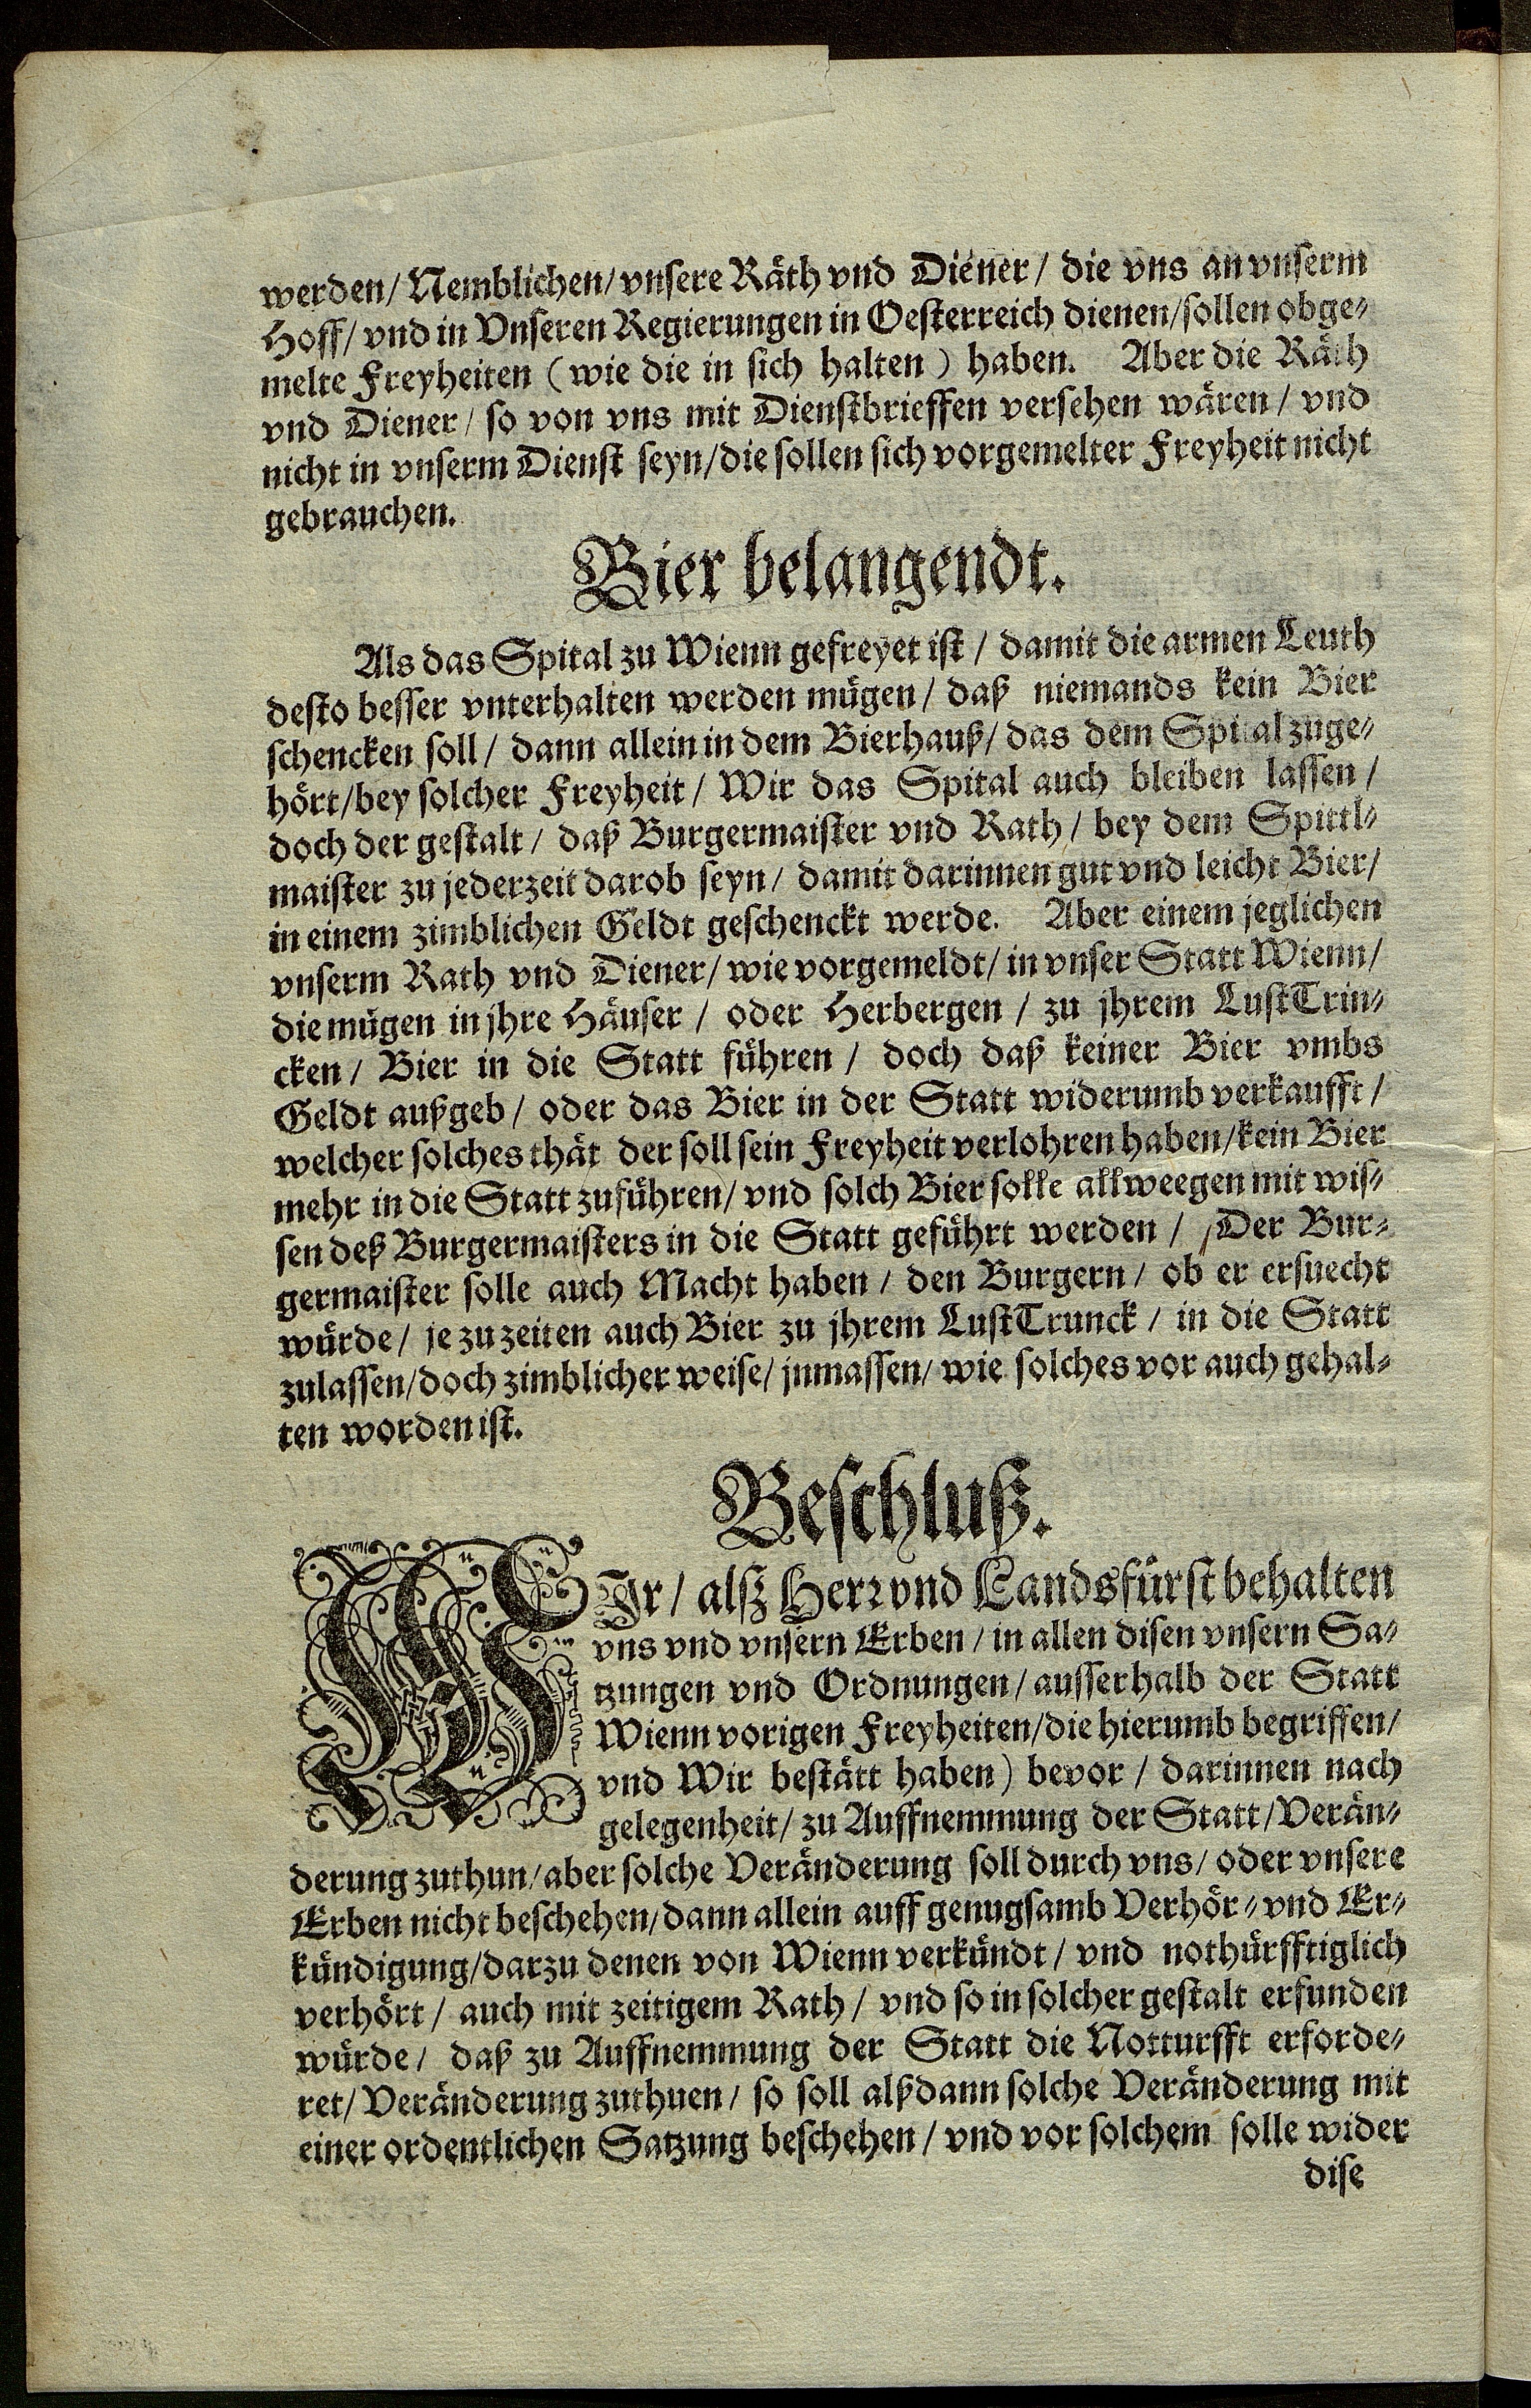 werden/ Nemblichen/ vnsere Räth vnd Diener/ die vns an vnserm
Hoff/ vnd in Vnseren Regierungen in Oesterreich dienen/ sollen obge-
melte Freyheiten (wie die in sich halten) haben. Aber die Räth
vnd Diener/ so von vns mit Dienstbrieffen versehen wären/ vnd
nicht in vnserm Dienst seyn/ die sollen sich vorgemelter Freyheit nicht
gebrauchen.
Bier belangendt.
Als das Spital zu Wienn gefreyet ist/ damit die armen Leuth
desto besser vnterhalten werden mügen/ daß niemands kein Bier
schencken soll/ dann allein in dem Bierhauß/ das dem Spital zuge-
hört/ bey solcher Freyheit/ Wir das Spital auch bleiben lassen/
doch der gestalt/ daß Burgermaister vnd Rath/ bey dem Spittl-
maister zu jederzeit darob seyn/ damit darinnen gut vnd leicht Bier/
in einem zimblichen Geldt geschenckt werde. Aber einem jeglichen
vnserm Rath vnd Diener/ wie vorgemeldt/ in vnser Statt Wienn/
die mügen in jhre Häuser/ oder Herbergen/ zu jhrem LustTrin-
cken/ Bier in die Statt führen/ doch daß keiner Bier vmbs
Geldt außgeb/ oder das Bier in der Statt widerumb verkaufft/
welcher solches thät der soll sein Freyheit verlohren haben/ kein Bier
mehr in die Statt zuführen/ vnd solch Bier solle allweegen mit wis-
sen deß Burgermaisters in die Statt geführt werden/ Der Bur-
germaister solle auch Macht haben/ den Burgern/ ob er ersuecht
würde/ je zu zeiten auch Bier zu jhrem LustTrunck/ in die Statt
zulassen/ doch zimblicher weise/ jnmassen/ wie solches vor auch gehal-
ten worden ist.
Beschluß.
WIr/ alß Herr vnd Landsfürst behalten
vns vnd vnsern Erben/ in allen disen vnsern Sa-
tzungen vnd Ordnungen/ ausserhalb der Statt
Wienn vorigen Freyheiten/ die hierumb begriffen/
vnd Wir bestätt haben) bevor/ darinnen nach
gelegenheit/ zu Auffnemmung der Statt/ Verän-
derung zuthun/ aber solche Veränderung soll durch vns/ oder vnsere
Erben nicht beschehen/ dann allein auff genugsamb Verhör- vnd Er-
kündigung/ darzu denen von Wienn verkündt/ vnd nothürfftiglich
verhört/ auch mit zeitigem Rath/ vnd so in solcher gestalt erfunden
würde/ daß zu Auffnemmung der Statt die Notturfft erforde-
ret/ Veränderung zuthuen/ so soll alßdann solche Veränderung mit
einer ordentlichen Satzung beschehen/ vnd vor solchem solle wider
dise